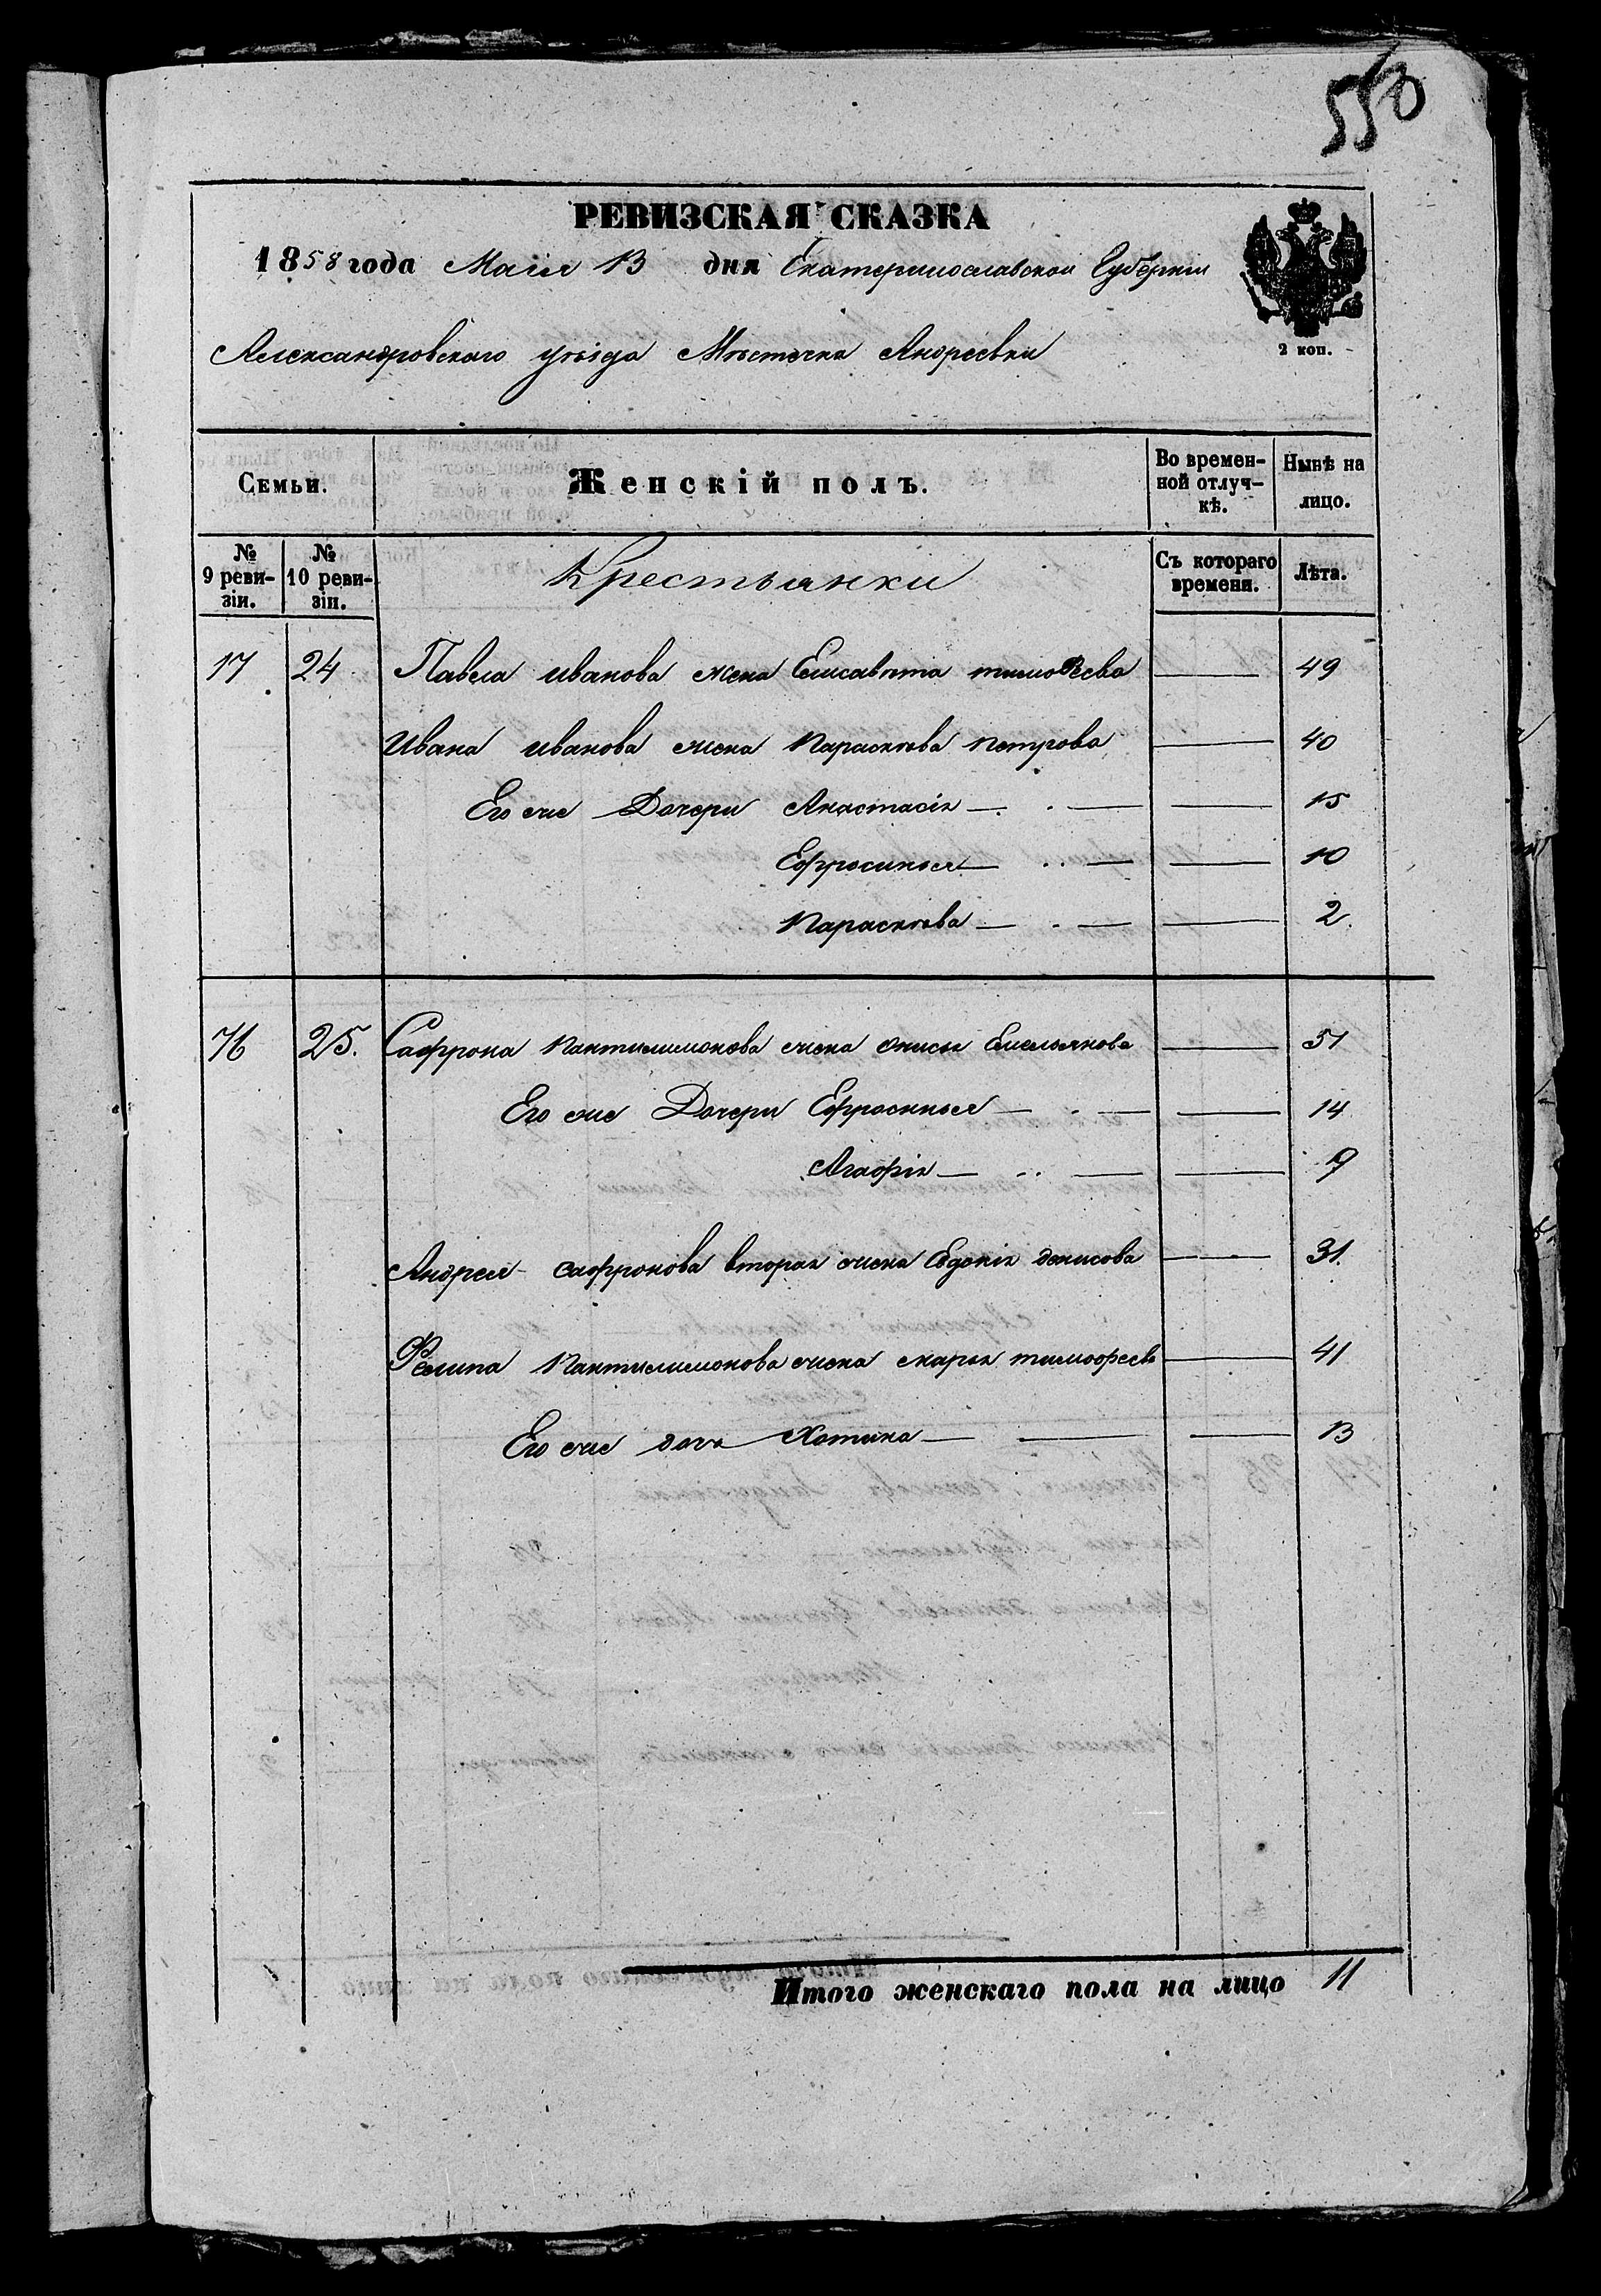 550
РЕВИЗСКАЯ СКАЗКА
1858 года Маія 13 дня Екатеринославской Губерніи
2 коп.
Александровскаго уѣзда Мѣстечка Андреевки
Семьи. Женскій полъ. Во времен-ной отлуч-кѣ. Нынѣ на лицо.
№ 9 реви-зіи. № 10 реви-зіи. Крестьянки Съ котораго времени. Лѣта.
17 24 Павла иванова жена Елисавѣта тимоѳеева — 49
Ивана иванова жена Параскѣва петрова — 40
Его же Дочери Анастасія — 15
Ефросинья — 10
Параскѣва — 2.
76 25. Сафрона пантилимонова жена Анисья Емельянова — 51
Его же Дочери Ефросинья — 14
Агафія — 9
Андрея сафронова вторая жена Евдокія денисова — 31.
Филипа Пантилимонова жена марья тимофеева — 41
Его же дочь Хотина — 13
Итого женскаго пола на лицо 11